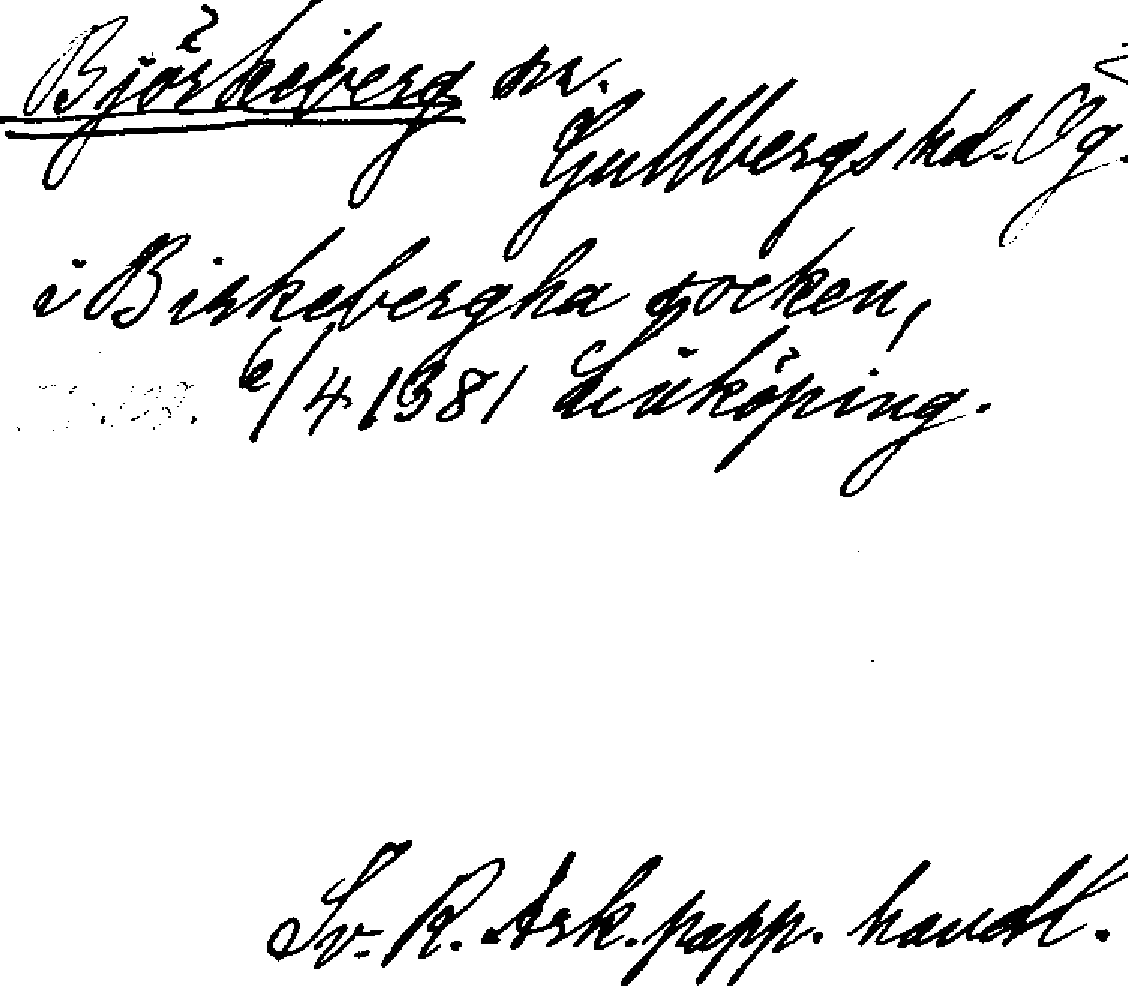 Björkeberg sn.
Gullbergs hd. Ög.
i Birkebergha socken,
6/4 1381 Linköping.
Sv. R. Ark. papp. handl.